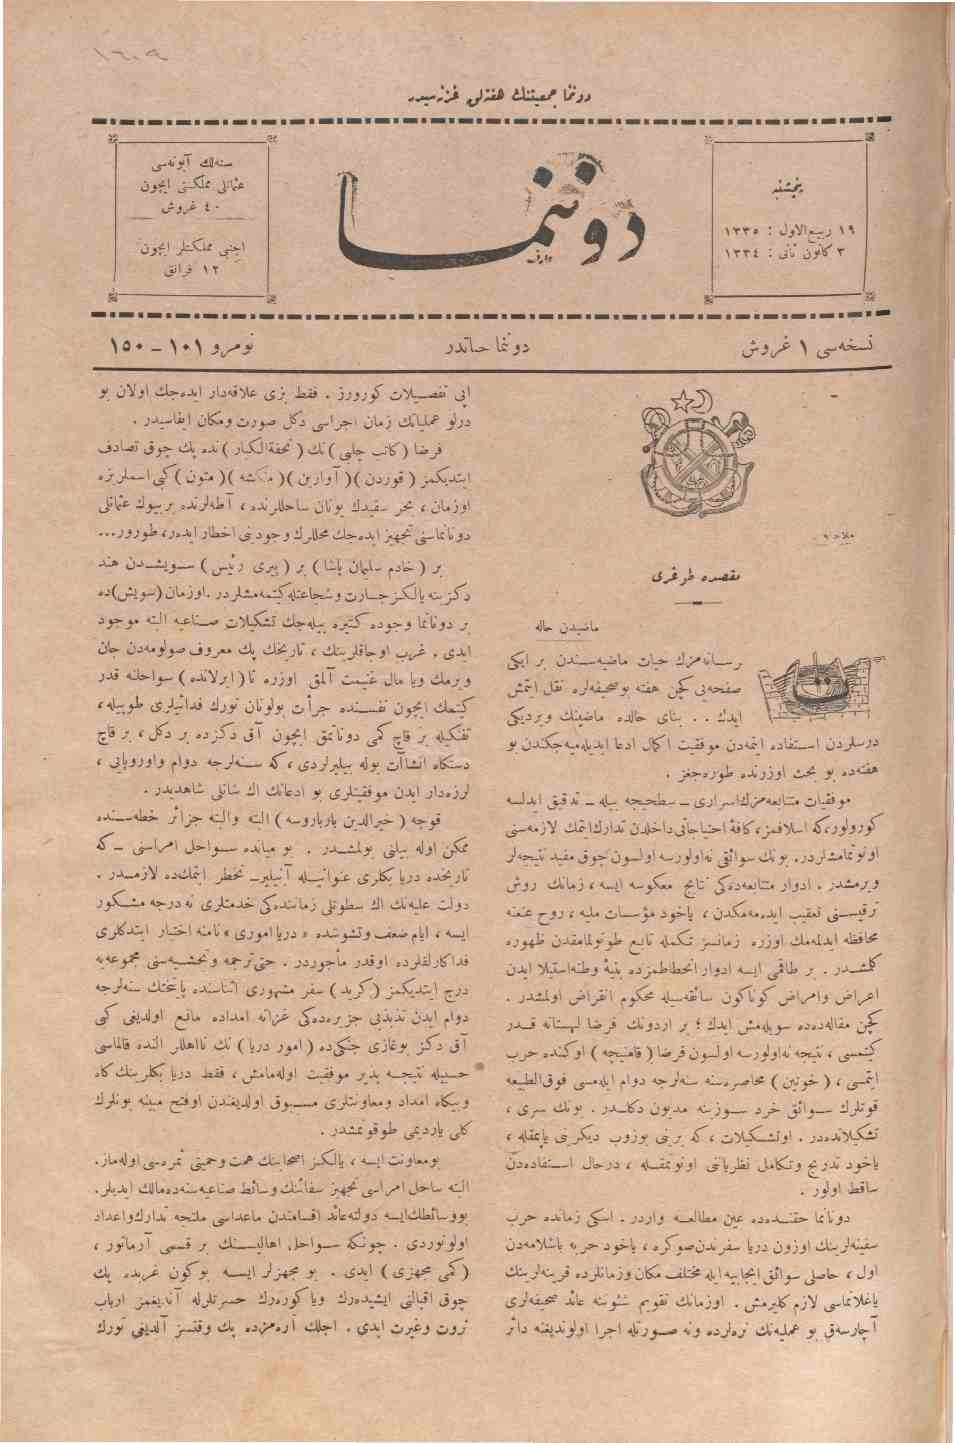 ١٦٠٩
دوننما جمعیتنك هفته‌لق غزته‌سیدر
پنجشنبه
١٩ ربیع‌الاول : ١٣٣٥
٣ كانون ثانی : ١٣٣٤
دوننما
سنه‌لك آبونه‌سی
عثمانلی مملكتی ایچون
٤٠ غروش
اجنبی مملكتلر ایچون
١٢ فرانق
نسخه‌سی ١ غروش
دوننما حیاتدر
نومرو ١٠١ – ١٥٠
مقصده طوغری
ماضیدن حاله
رسانه‌مزك حیات ماضیه‌سندن بر ایكی
صفحه‌یی كچن هفته بو صحیفه‌لره نقل ایتمش
ایدك . . بنای حالده ماضینك ویردیكی
درسلردن استفاده ایتمه‌دن موفقیت اكمال ادعا ایدیله‌میه‌جكندن بو
هفته‌ده بو بحث اوزرنده طوره‌جغز .
موفقیات متتابعه‌مزك اسراری – سطحیجه بیله – تدقیق ایدلسه
كورولور، كه اسلافمز، كافهٔ احتیاجاتی داخلدن تدارك ایتمك لازمه‌سنی
اونوتمامشلردر. بونك سوائقی نه‌اولورسه اولسون چوق مفید نتیجه‌لر
ویرمشدر . ادوار متتابعه‌ده‌كی نتایج معكوسه ایسه ، زمانك روش
ترقیسنی تعقیب ایده‌مه‌مكدن ، یاخود مؤسسات ملیه ، روح عنعنه
محافظه ایدلمه‌مك اوزره زمانسز تكمله تابع طوتولمامقدن ظهوره
كلمشدر . بر طاقمی ایسه ادوار انحطاطمزده بنیهٔ وطنه استیلا ایدن
اعراض وامراض كوناكون سائقه‌سیله محكوم انقراض اولمشدر .
كچن مقاله‌ده‌ده سویله‌مش ایدك ؛ بر اردونك فرضا لهستانه قدر
كیتمسی ، نتیجه نه‌اولورسه اولسون فرضا ( قامنیچه ) اوكنده حرب
ایتمسی ، ( خوتین ) محاصره‌سنه سنه‌لرجه دوام ایله‌مسی فوق‌الطبیعه
قوتلرك سوائق خرد سوزینه مدیون دكلدر . بونك سری ،
تشكیلاتده‌در . اوتشكیلات ، كه برینی بوزوب دیكرینی یاپمقله ،
یاخود تدریج وتكامل نظریاتنی اونوتمقله ، درحال استفاده‌دن
ساقط اولور .
دونانما حقنده‌ده عین مطالعه واردر . اسكی زمانده حرب
سفینه‌لرینك اوزون دریا سفرندن‌صوكره ، یاخود حربه باشلامه‌دن
اول ، حاصلی سوائق ایجابیه ایله مختلف مكان وزمانلرده قرینه‌لرینك
یاغلانماسی لازم كلیرمش . اوزمانك تقویم شئوننه عائد صحیفه‌لری
آچارسه‌ق بو عملیه‌نك نره‌لرده ونه صورتله اجرا اولوندیغنه دائر
ایی تفصیلات كورورز . فقط بزی علاقه‌دار ایده‌جك اولان بو
درلو عملیاتك زمان اجراسی دكل صورت ومكان ایفاسیدر .
فرضا ( كاتب چلبی ) نك ( تحفة‌الكبار ) نده پك چوق تصادف
ایتدیكمز ( قوردن ) ( آوارین ) ( منكشه ) ( متون ) كبی اسملر بزه
اوزمان ، بحر سفیدك یونان ساحللرنده ، آطه‌لرنده بر بیوك عثمانلی
دونانماسنی تجهیز ایده‌جك محللرك وجودینی اخطار ایدر، طورور...
بر ( خادم سلیمان پاشا ) بر ( پیری رئیس ) سویشدن هند
دكزینه یالكز جسارت وشجاعتله كیتمه‌مشلردر . اوزمان (سویش)ده
بر دونانما وجوده كتیره بیله‌جك تشكیلات صناعیه البته موجود
ایدی . غرب اوجاقلرینك ، تاریخك پك معروف صولومه‌دن جان
ویرمك ویا مال غنیمت آلمق اوزره تا ( ایرلانده ) سواحلنه قدر
كیتمك ایچون نفسنده جرأت بولونان تورك فدائیلری طوپیله ،
تفنكیله بر قاچ كمی دوناتمق ایچون آق دكزده بر دكل ، بر قاچ
دستكاه انشاآت بوله بیلیرلردی ، كه سنه‌لرجه دوام واوروپایی ،
لرزه‌دار ایدن موفقیتلری بو ادعانك اك شانلی شاهدیدر .
قوجه ( خیرالدین بارباروسه ) البته والبته جزائر خطه‌سنده
ممكن اوله بیلنی بولمشدر . بو میانده سواحل امراسنی – كه
تاریخده دریا بكلری عنوانیله آنیلیر – تخطر ایتمك‌ده لازمدر .
دولت علیه‌نك اك سطوتلی زماننده‌كی خدمتلری نه درجه مشكور
ایسه ، ایام ضعف وتشوشده « دریا اموری » نامنه اختیار ایتدكلری
فداكارلقلرده اوقدر مأجوردر . حتی ترجمه وتحشیه‌سنی مجموعه‌یه
درج ایتدیكمز ( كرید ) سفر مشهوری اثناسنده پایتختك سنه‌لرجه
دوام ایدن تذبذبی جزیره‌ده‌كی غزاته امداده مانع اولدیغی كبی
آق دكز بوغازی جنكی‌ده ( امور دریا ) نك نااهللر النده قالماسی
حسبیله نتیجه پذیر موفقیت اوله‌مامش ، فقط دریا بكلرینك كاه
وبیكاه امداد ومعاونتلری مسبوق اولدیغندن اوفتح مبینه بونلرك
كلی یاردیمی طوقونمشدر .
بومعاونت ایسه ، یالكز اصحابنك همت وحمیتی ثمره‌سی اوله‌ماز.
البته ساحل امراسی تجهیز سفائنك وسائط صناعیه‌سنه‌ده‌مالك ایدیلر.
بووسائطك‌ایسه دولته‌عائد اقسامندن ماعداسی ملتجه تدارك واعداد
اولونوردی . چونكه سواحل اهالیسنك بر قسمی آرماتور ،
( كمی مجهزی ) ایدی . بو مجهزلر ایسه بوكون غربده پك
چوق اقبالنی ایشیده‌رك ویا كوره‌رك حسرتلرله آندیغمز ارباب
ثروت وغیرت ایدی . اجلك آره‌مزده پك وقتسز آلدیغی تورك